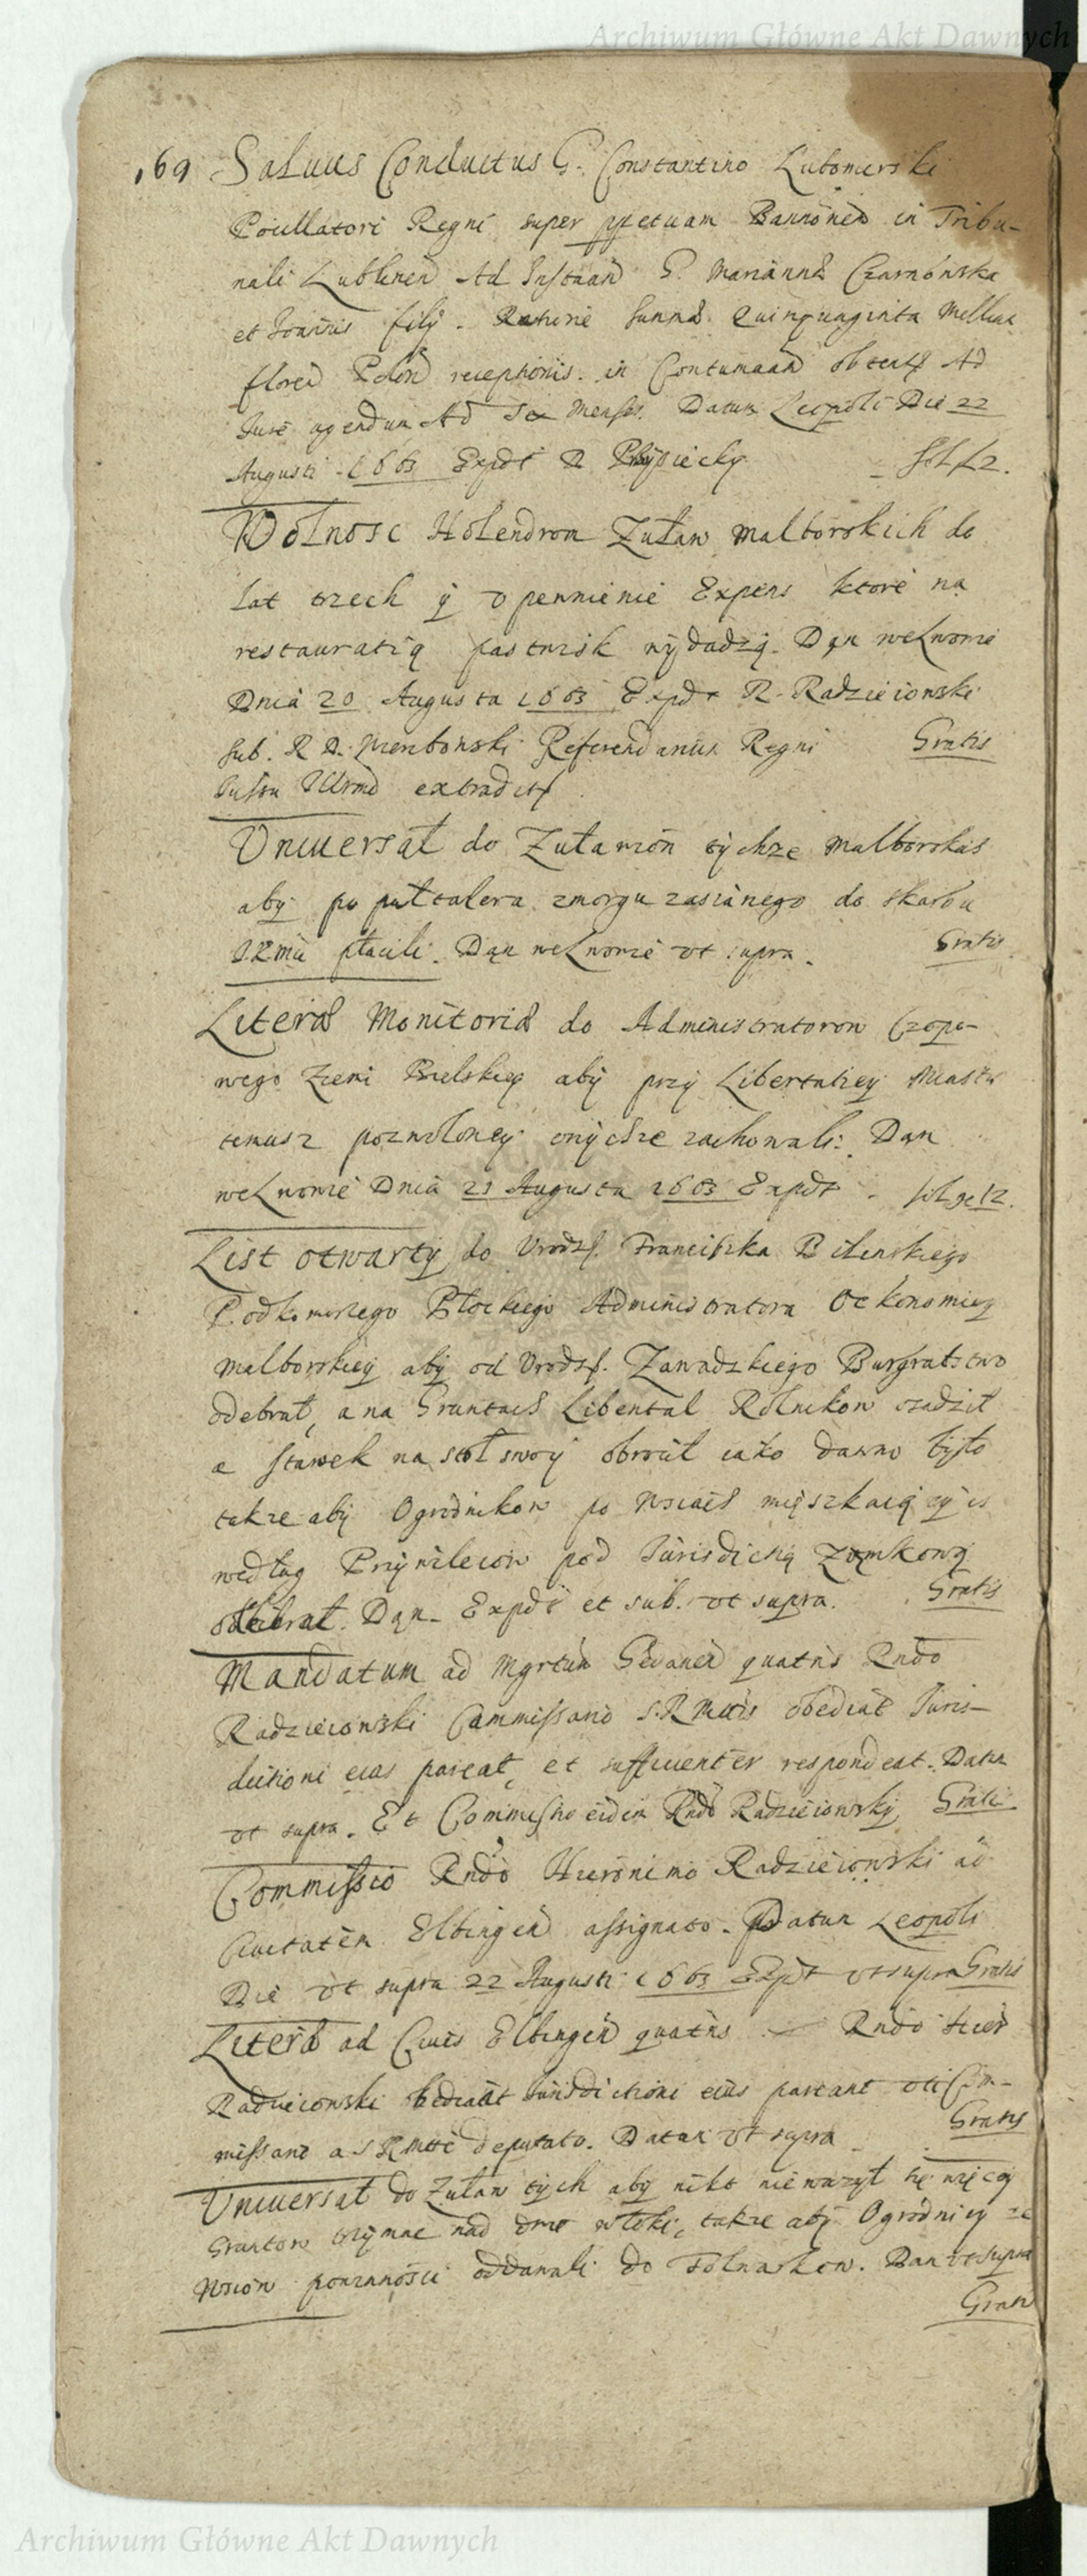 Archiwum Główne Akt Dawnych
,69 Saluus Conductus G. Constantino Lubomirski
Pocillatori Regni super ppetuam Bannoned in Tribu-
nali Lublinen Ad Instaan G. Marianna Czarnowska
et Joannis filij. Ratione summa Quinquaginta Mille
floren Polon receptionis in Contumaciam obtent Ad
Jure agendum Ad Sex Menses. Datum Leopoli Die 22
Augusti 1663 Expdt R Przypiecky
Wolnosc Holendrom Zuław Malborskich do
lat trzech y upewnienie Expens ktore na
restauratią pastwisk wydadzą. Dan weLwowie
Dnia 20 Augusta 1663 Expdt R. Radzieiowski
Sub. R D. Referendarius Regni Gratis
Jussu extradit
Uniuersał do Zuławow tychze Malborskich
aby po puł talera z morgu zasianego do skarbu
JKMci płacili. Dan weLwowie ut supra. Gratis
Litera Monitoria do Administratorow Czopo-
wego Ziemi Bielskiey aby przy Libertatiey Miastu
temusz pozwoloney onychze zachowali. Dan
weLwowie Dnia 21 Augusta 1663 Expdt
List otwarty do Urodz. Franciszka Bilinskiego
Podkomorzego Płockiego Administratora Oekonomiey
Malborskiey aby od Urodz. Zawadzkiego Burgrabstwo
odebrał, a na Gruntach Libental Rolnikow osadził
a stawek na stoł swoy obrocił iako dawno było
takze aby Ogrodnikow po Wsiach mięszkaiących
według Przywileiow pod Jurisdictią Zamkową
odebrał. Dan. Expdt et sub. ut supra. Gratis
Mandatum ad Mgrtum Gedanen quatns Rndo
Radzieiowski Commissario S.R Mttis obediat Juris-
dictioni eius pareat, et sufficienter respondeat. Datum
ut supra. Et Commissio eidem Rndo Radzieiowsky Gratis
Commissio Rndo Hieronimo Radzieiowski ad
Ciuitatem Elbingen assignato. Datum Leopoli
Die ut supra 22 Augusti 1663 Expdt ut supra Gratis
Litera ad Ciues Elbingen quatns Rndo Hier
Radzieiowski obediant Jurisdictioni eius pareant uti Com-
missario a S R Mtte deputato. Datum ut supra Gratis
Uniuersał do Zuław tych aby nikt nie wazył się więcey
Gruntow trzymac nad dwie włoki, takze aby Ogrodnicy ze
Wsiow powinnosci oddawali do Folwarkow. Dan ut supra
Gratis
Archiwum Główne Akt Dawnych